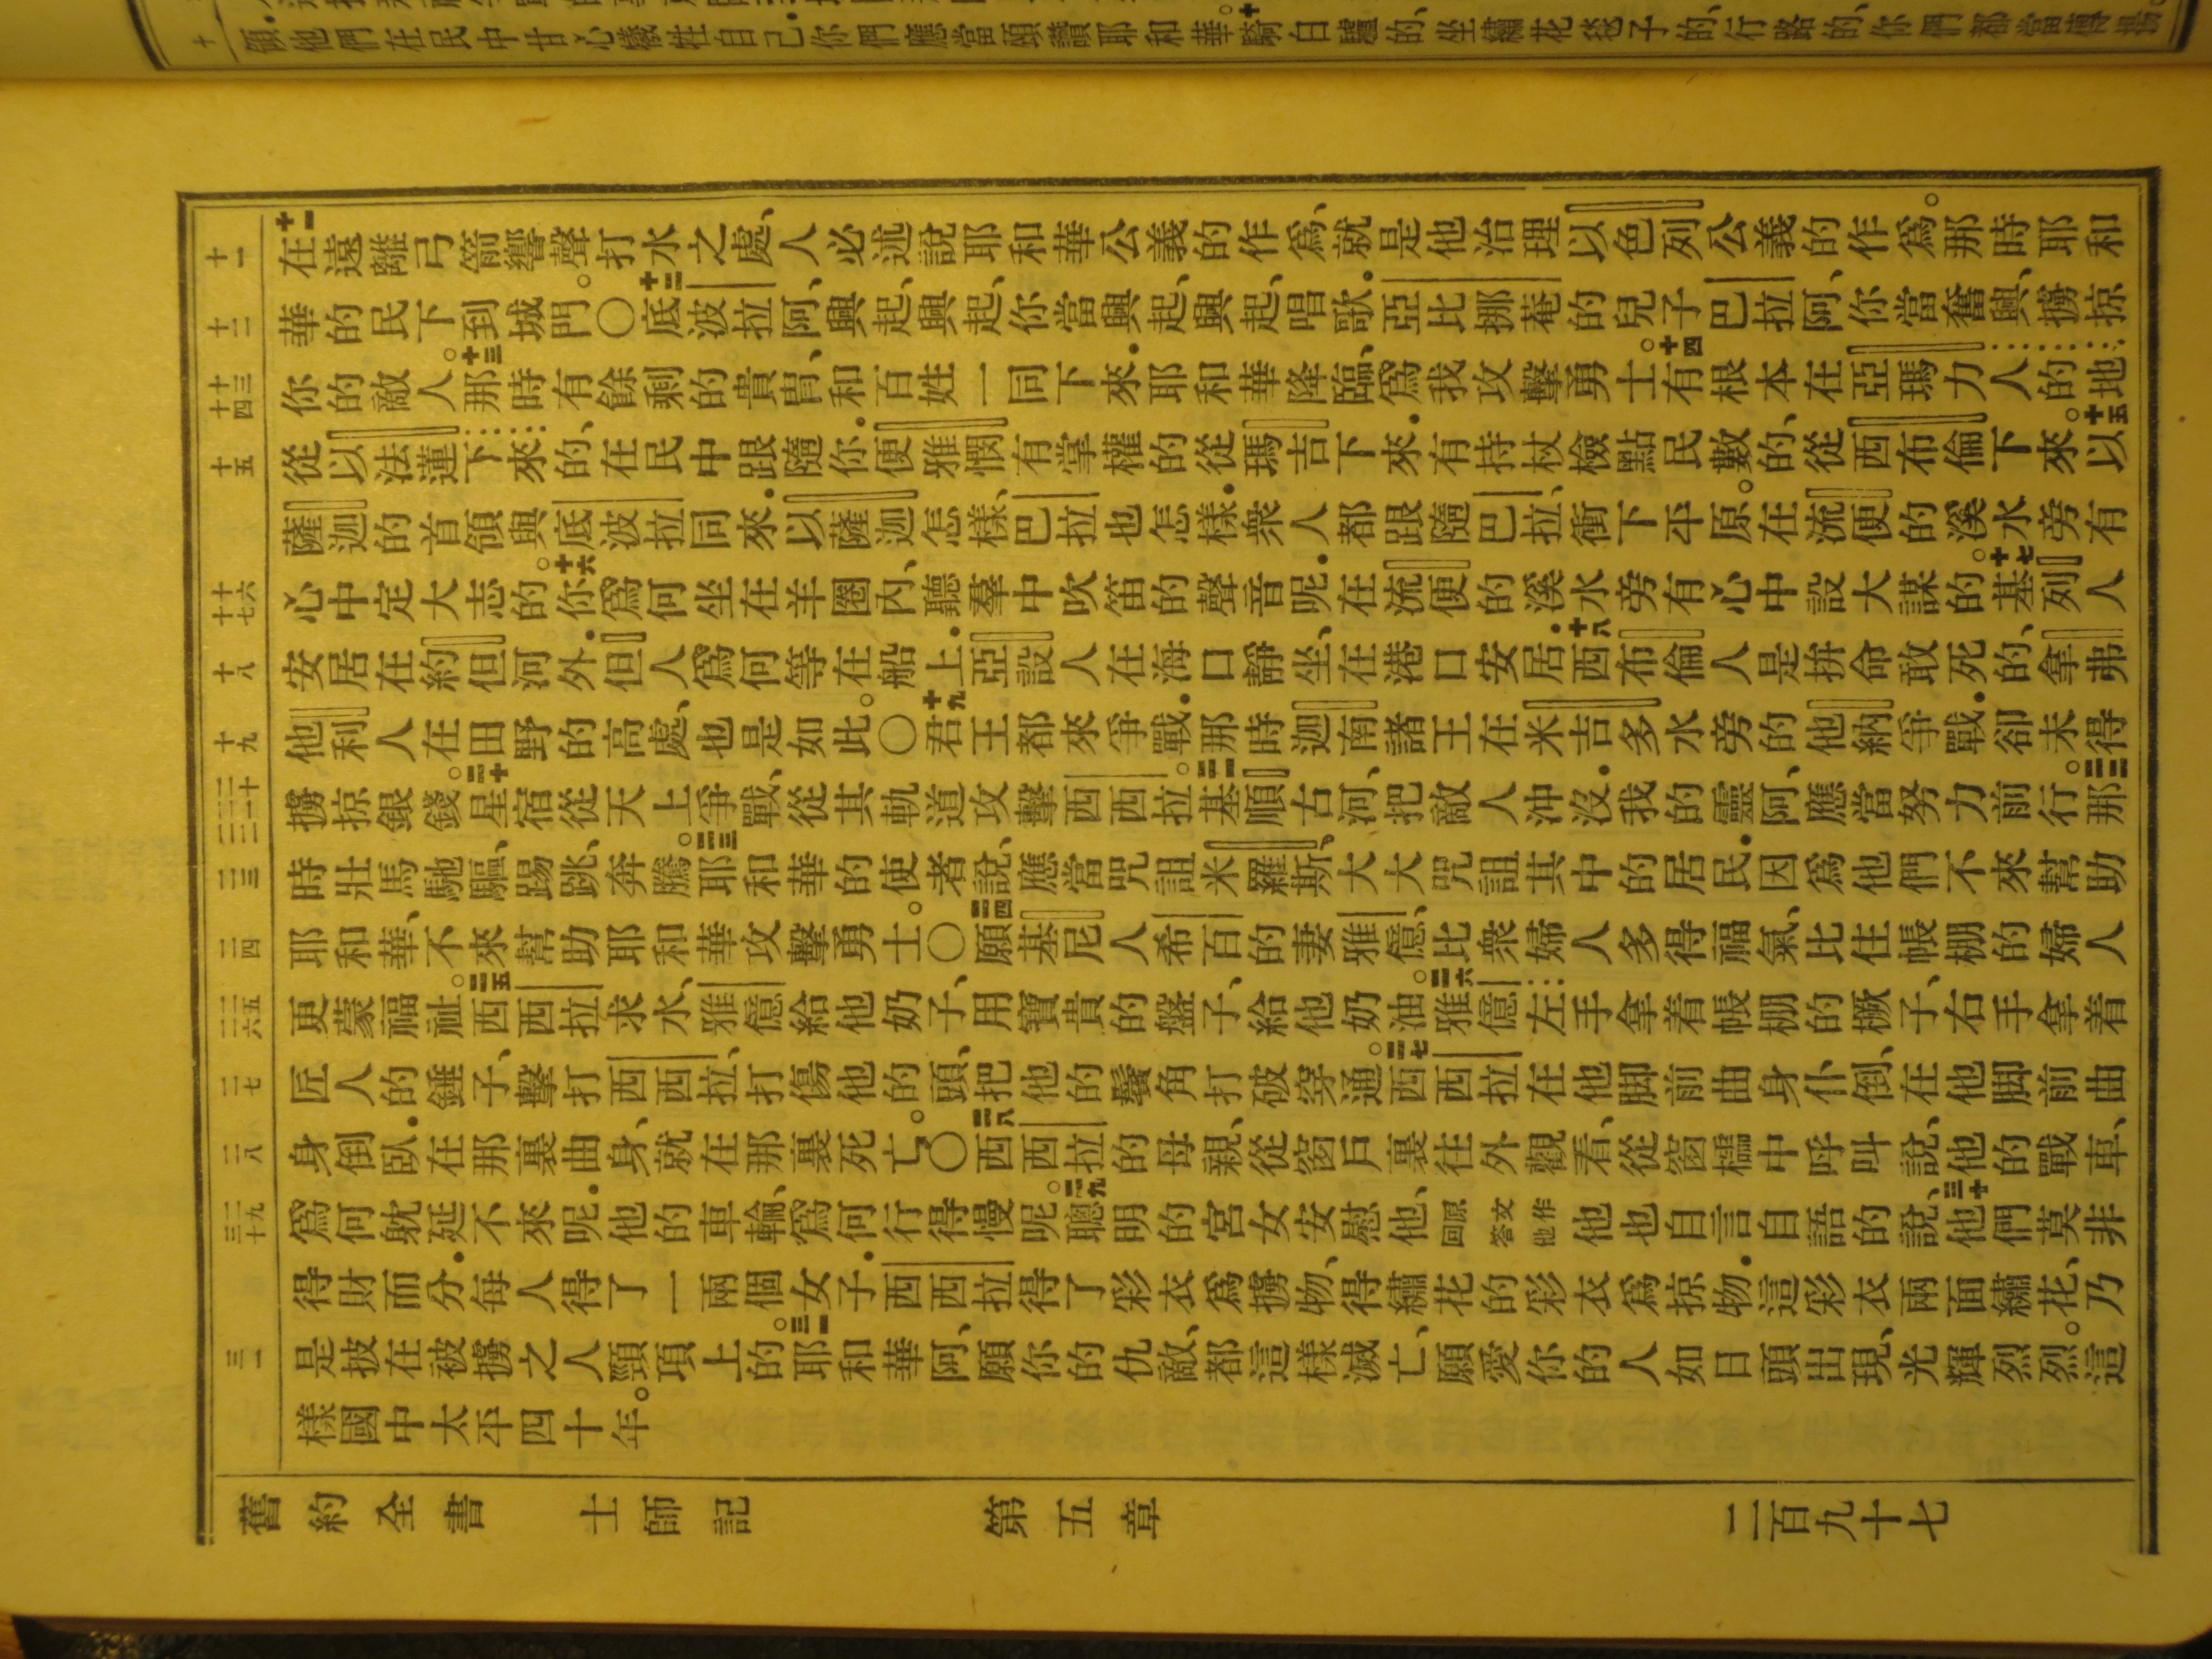 十 領.他們在民中甘心犧牲自己.你們應當頌讚耶和華。十騎白驢的、坐繡花毯子的、行路的、你們都當傳揚。
十一 十一在遠離弓箭響聲打水之處、人必述說耶和華公義的作爲、就是他治理以色列公義的作爲。那時耶和
十二 華的民下到城門。〇十二底波拉阿、興起、興起、你當興起、興起、唱歌.亞比挪菴的兒子巴拉阿、你當奮興、擄掠
十三 十四 你的敵人。十三那時有餘剩的貴冑、和百姓一同下來.耶和華降臨、爲我攻擊勇士。十四有根本在亞瑪力人的地、
十五 從以法蓮下來的、在民中跟隨你.便雅憫有掌權的從瑪吉下來.有持杖檢點民數的、從西布倫下來。十五以
薩迦的首領與底波拉同來.以薩迦怎樣、巴拉也怎樣.衆人都跟隨巴拉、衝下平原。在流便的溪水旁有
十六 十七 心中定大志的。十六你爲何坐在羊圈內、聽羣中吹笛的聲音呢.在流便的溪水旁有心中設大謀的。十七基列人
十八 安居在約但河外.但人爲何等在船上.亞設人在海口靜坐、在港口安居.十八西布倫人是拚命敢死的、拿弗
十九 他利人在田野的高處、也是如此。〇十九君王都來爭戰.那時迦南諸王在米吉多水旁的他納爭戰.卻未得
二十 二一 二二 擄掠銀錢。二十星宿從天上爭戰、從其軌道攻擊西西拉。二一基順古河、把敵人沖沒.我的靈阿、應當努力前行。二二那
二三 時壯馬馳驅、踢跳、奔騰。二三耶和華的使者說、應當咒詛米羅斯、大大咒詛其中的居民.因爲他們不來幫助
二四 耶和華、不來幫助耶和華攻擊勇士。〇二四願基尼人希百的妻雅億、比衆婦人多得福氣、比住帳棚的婦人
二五 二六 更蒙福祉。二五西西拉求水、雅億給他奶子、用寶貴的盤子、給他奶油。二六雅億左手拿着帳棚的橛子、右手拿着
二七 匠人的錘子、擊打西西拉、打傷他的頭、把他的鬢角打破穿通。二七西西拉在他脚前曲身仆倒、在他脚前曲
二八 身倒臥.在那裏曲身、就在那裏死亡。〇二八西西拉的母親、從窗戶裏往外觀看、從窗櫺中呼叫說、他的戰車、
二九 三十 爲何躭延不來呢.他的車輪、爲何行得慢呢。二九聰明的宮女安慰他、原文作回答他他也自言自語的說、三十他們莫非
得財而分.每人得了一兩個女子.西西拉得了彩衣爲擄物、得繡花的彩衣爲掠物.這彩衣兩面繡花、乃
三一 是披在被擄之人頸項上的。三一耶和華阿、願你的仇敵、都這樣滅亡、願愛你的人如日頭出現、光輝烈烈。這
樣國中太平四十年。
舊約全書 士師記 第五章 二百九十七